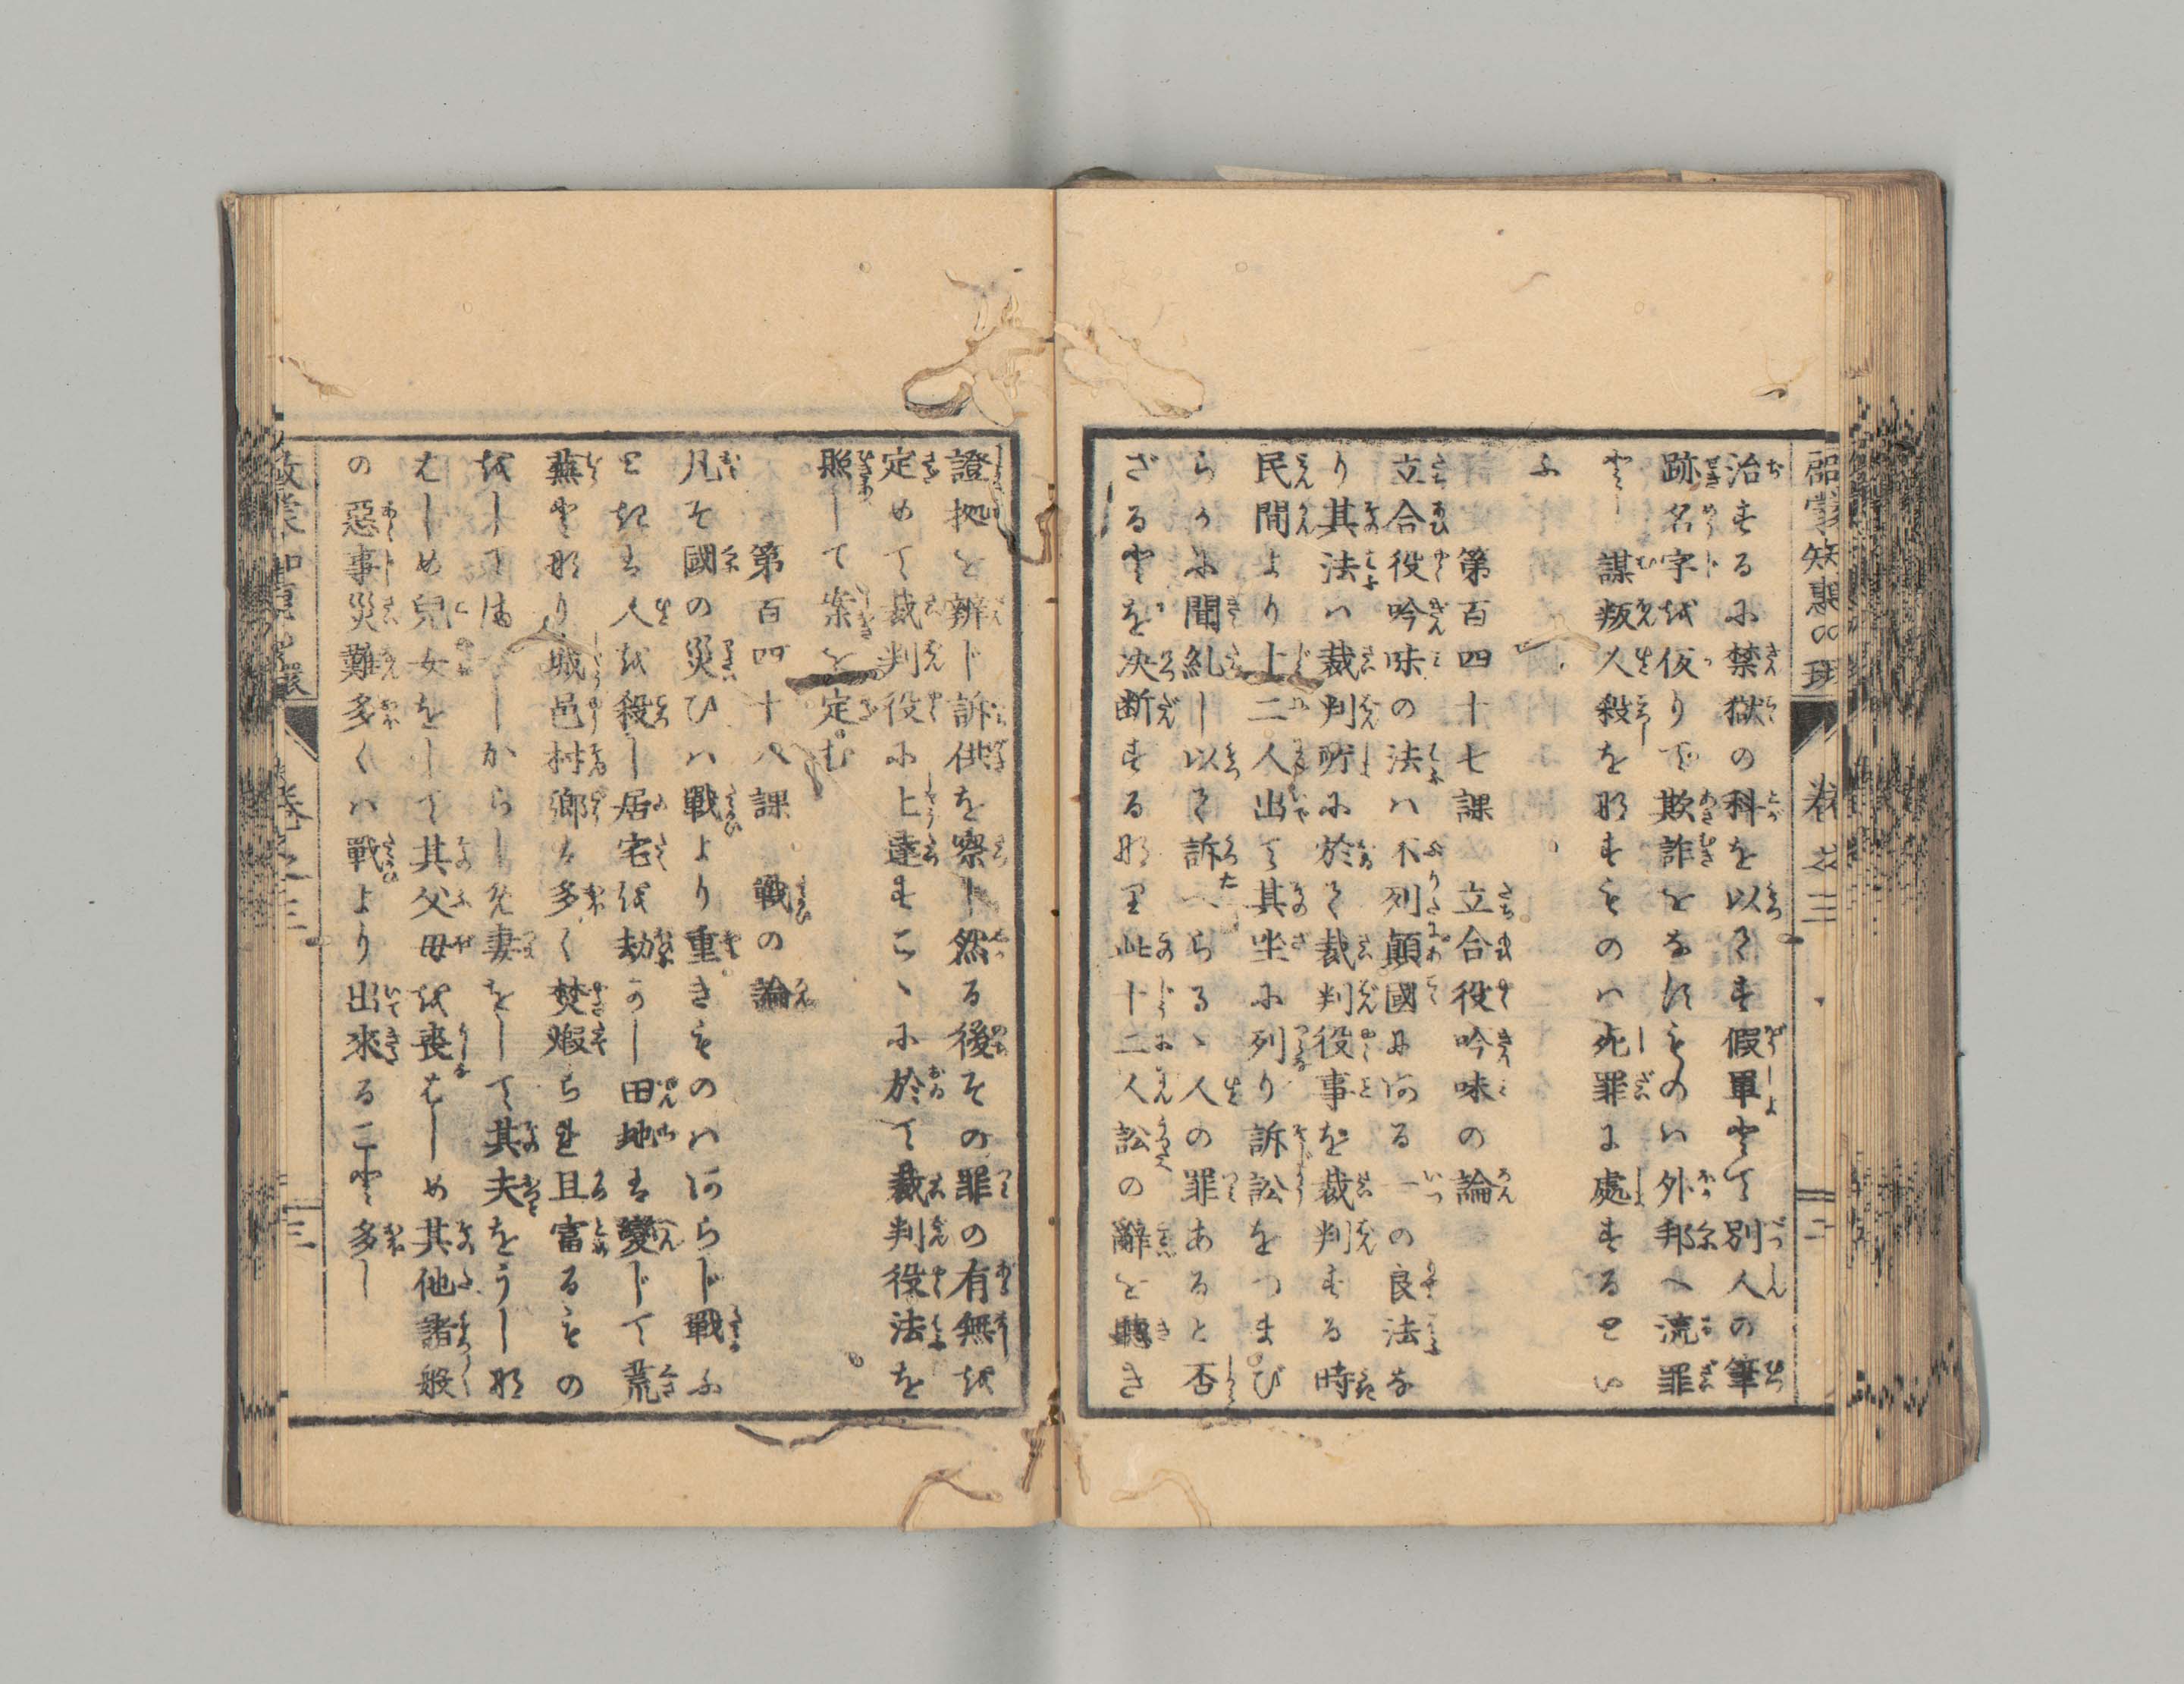 啓蒙知惠の環 卷之三 二
治するに禁獄の科を以てす假單とて別人の筆
跡名字を仮りて欺詐をなすものハ外邦へ流罪
とし 謀叛人殺を那すものハ死罪に處するとい
ふ
第百四十七課 立合役吟味の論
立合役吟味の法ハ不列顛國にある一の良法な
り其法ハ裁判所に於て裁判役事を裁判する時
民間より十二人出て其坐に列り訴訟をつまび
らかに聞糺し以て訴へらるゝ人の罪あると否
ざるとを决断する那里此十二人訟の辭を聽き
證拠を辨じ訴供を察し然る後その罪の有無を
定めて裁判役に上達すこゝに於て裁判役法を
照して案を定む
第百四十八課 戰の論
凡そ國の災ひハ戰より重きものハあらじ戰ふ
ときは人を殺し居宅を劫かし田地は變じて荒
蕪と那り城邑村鄉は多く焚燬られ且富るもの
をして貧しからしめ妻をして其夫をうし那
はしめ兒女をして其父母を喪はしめ其他諸般
の惡事災難多くハ戰より出來ること多し
啓蒙知惠の環 卷之三 三